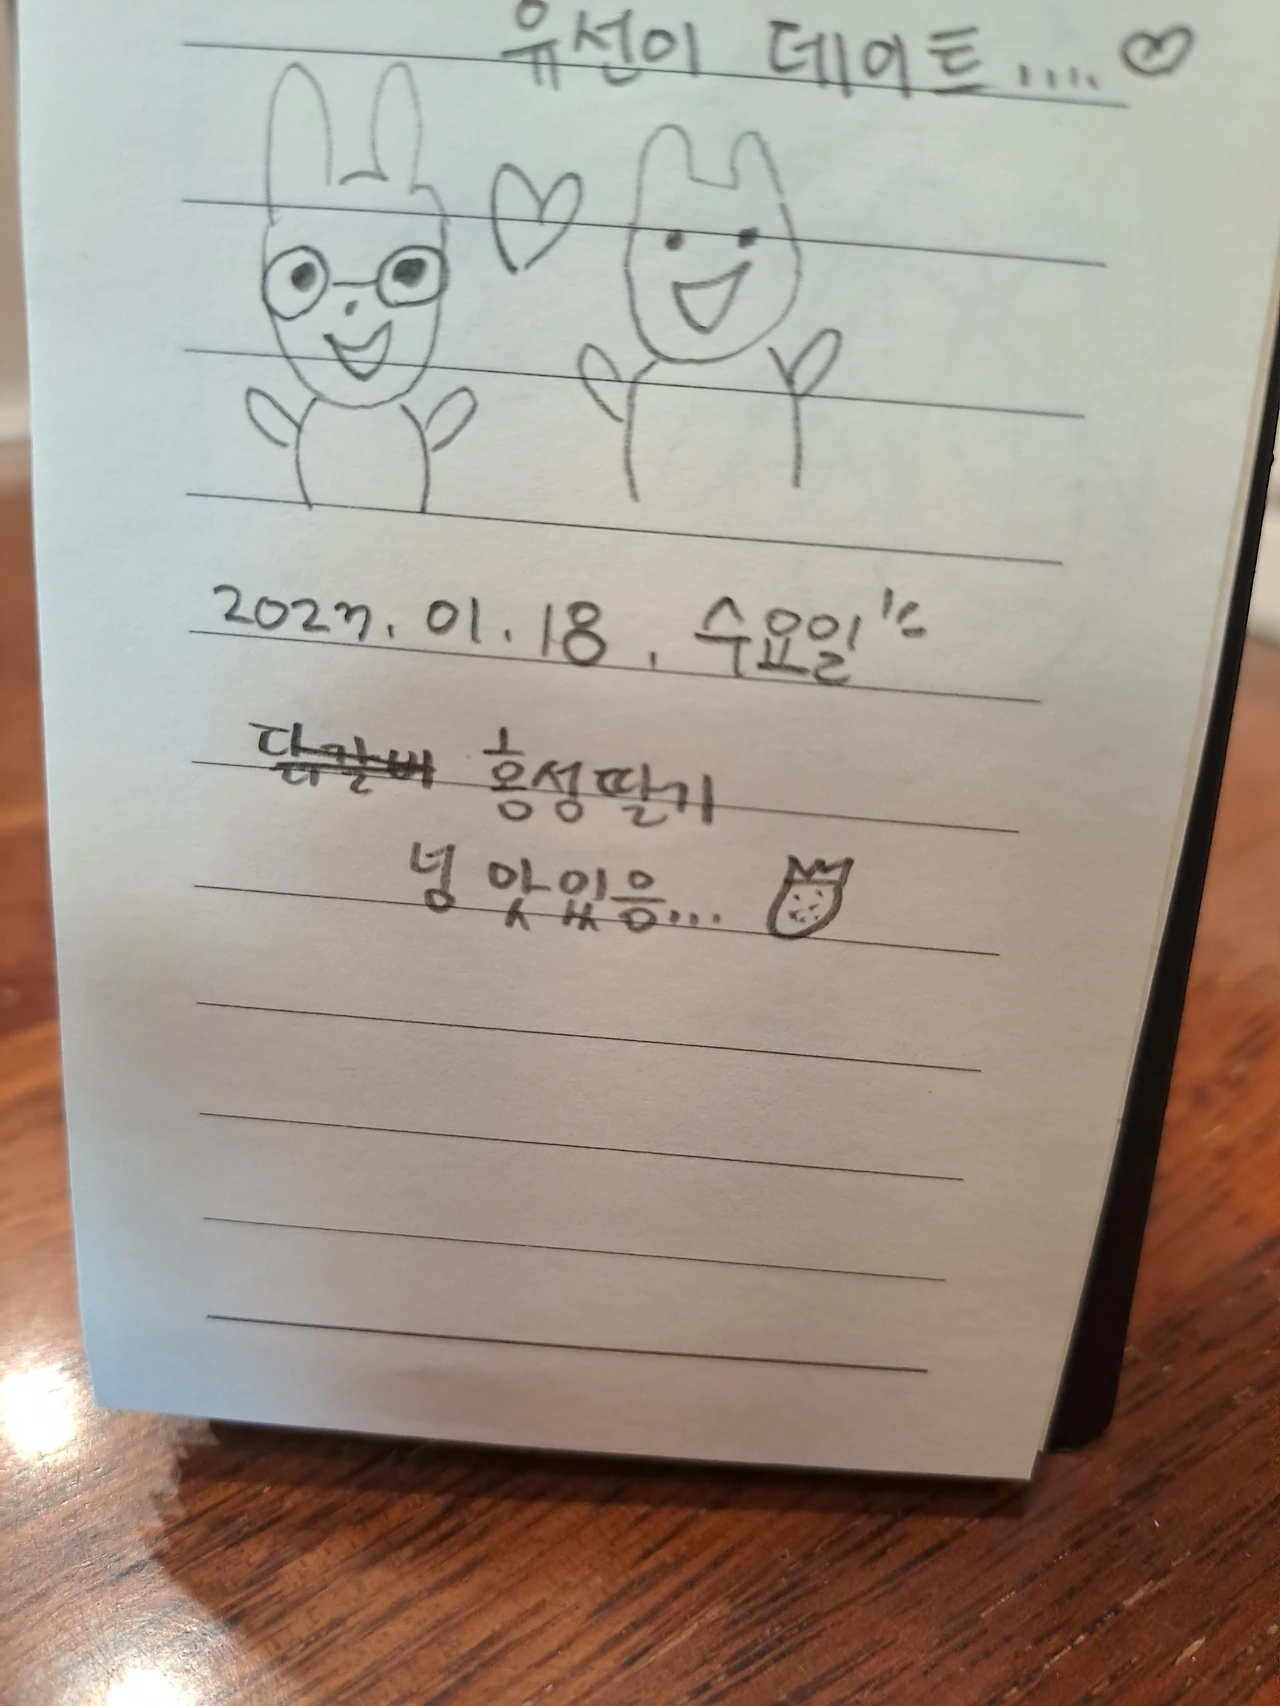 유선이 데이트.... ♡
2027. 01. 18, 수요일
홍성딸기
넘 맛있음...